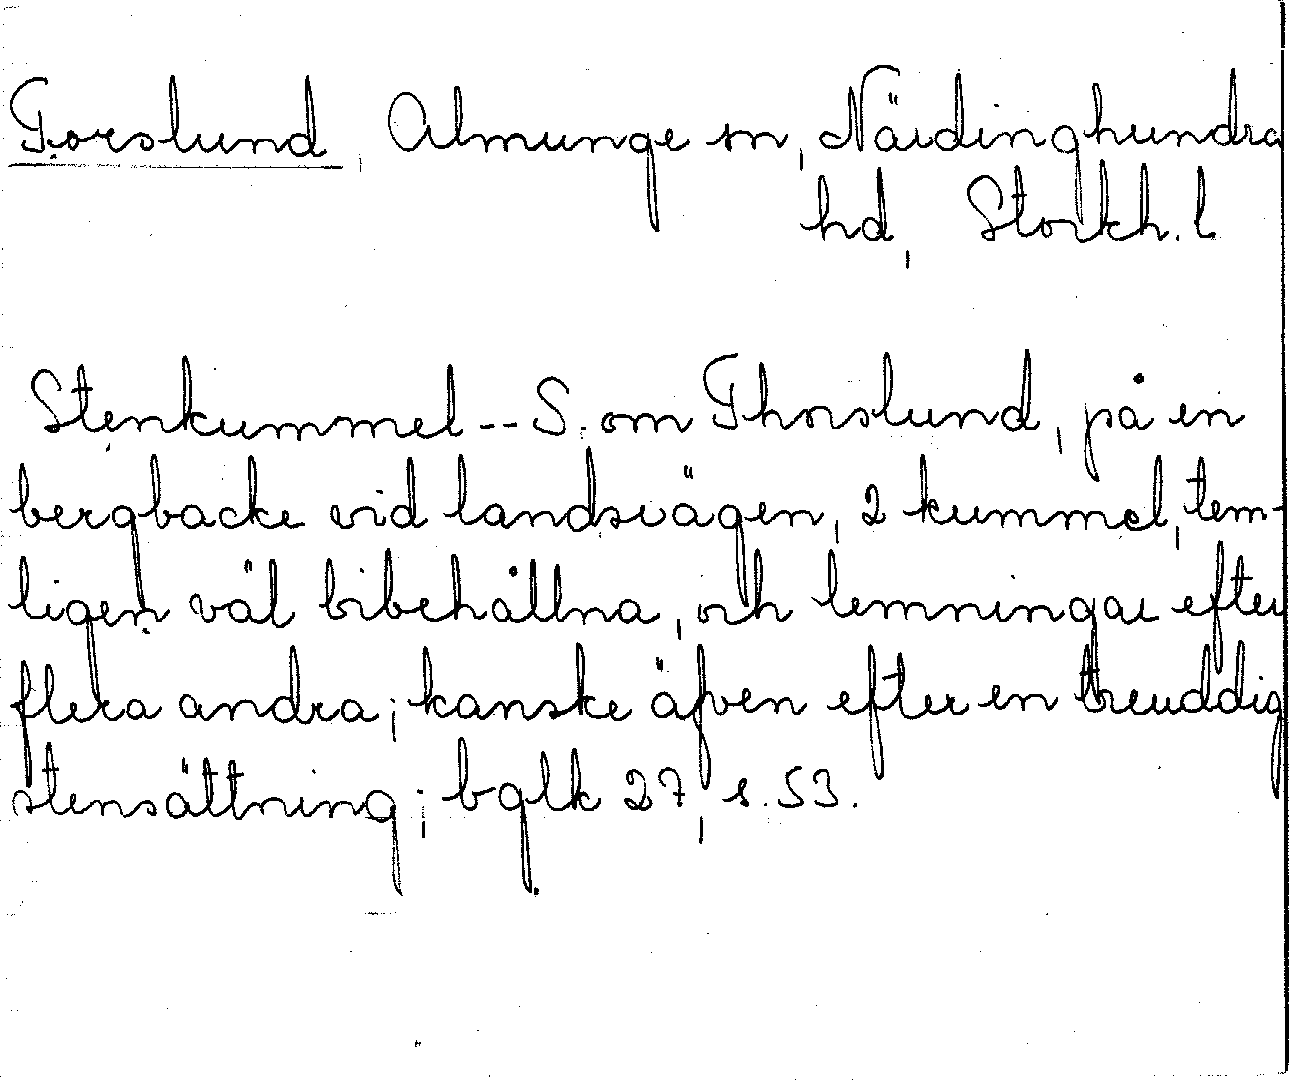 Torslund, Almunge sn, Närdinghundra
hd, Stockh. l
Stenkummel -- S. om Thorslund, på en
bergbacke vid landsvägen, 2 kummel, tem-
ligen väl bibehållna, och lemningar efter
flera andra; kanske äfven efter en treuddig
stensättning; bglk 27, s. 53.